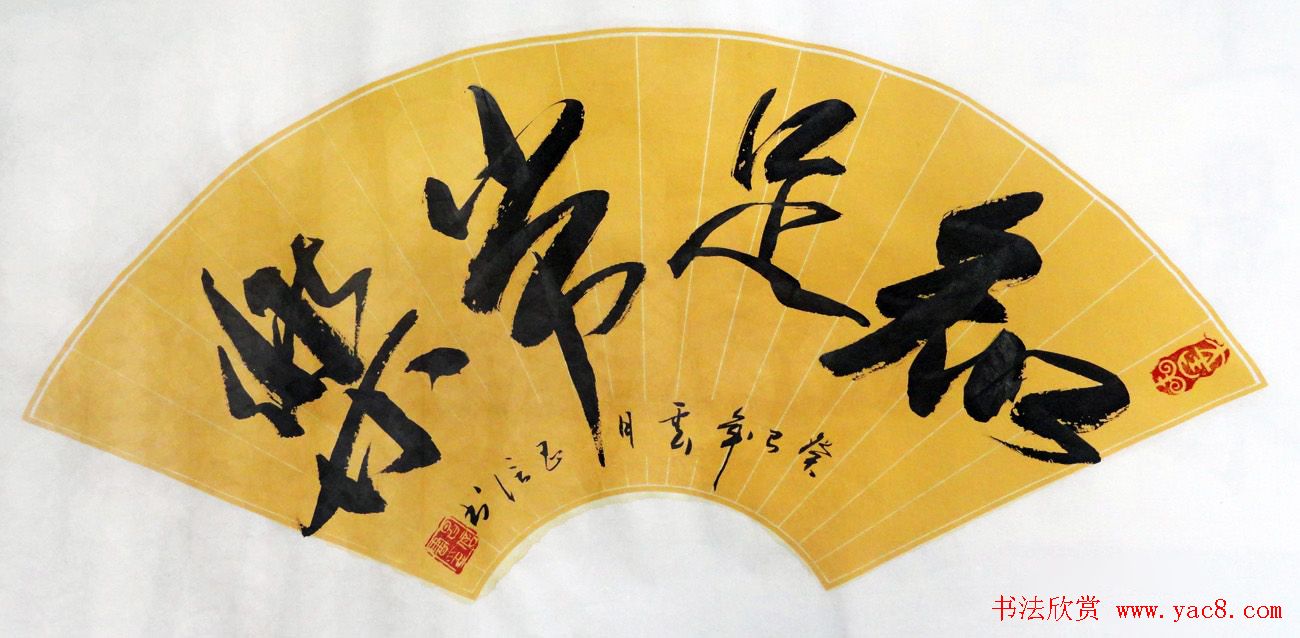 知足常樂
癸巳年雲月 信书
书法欣赏 www.yac8.com